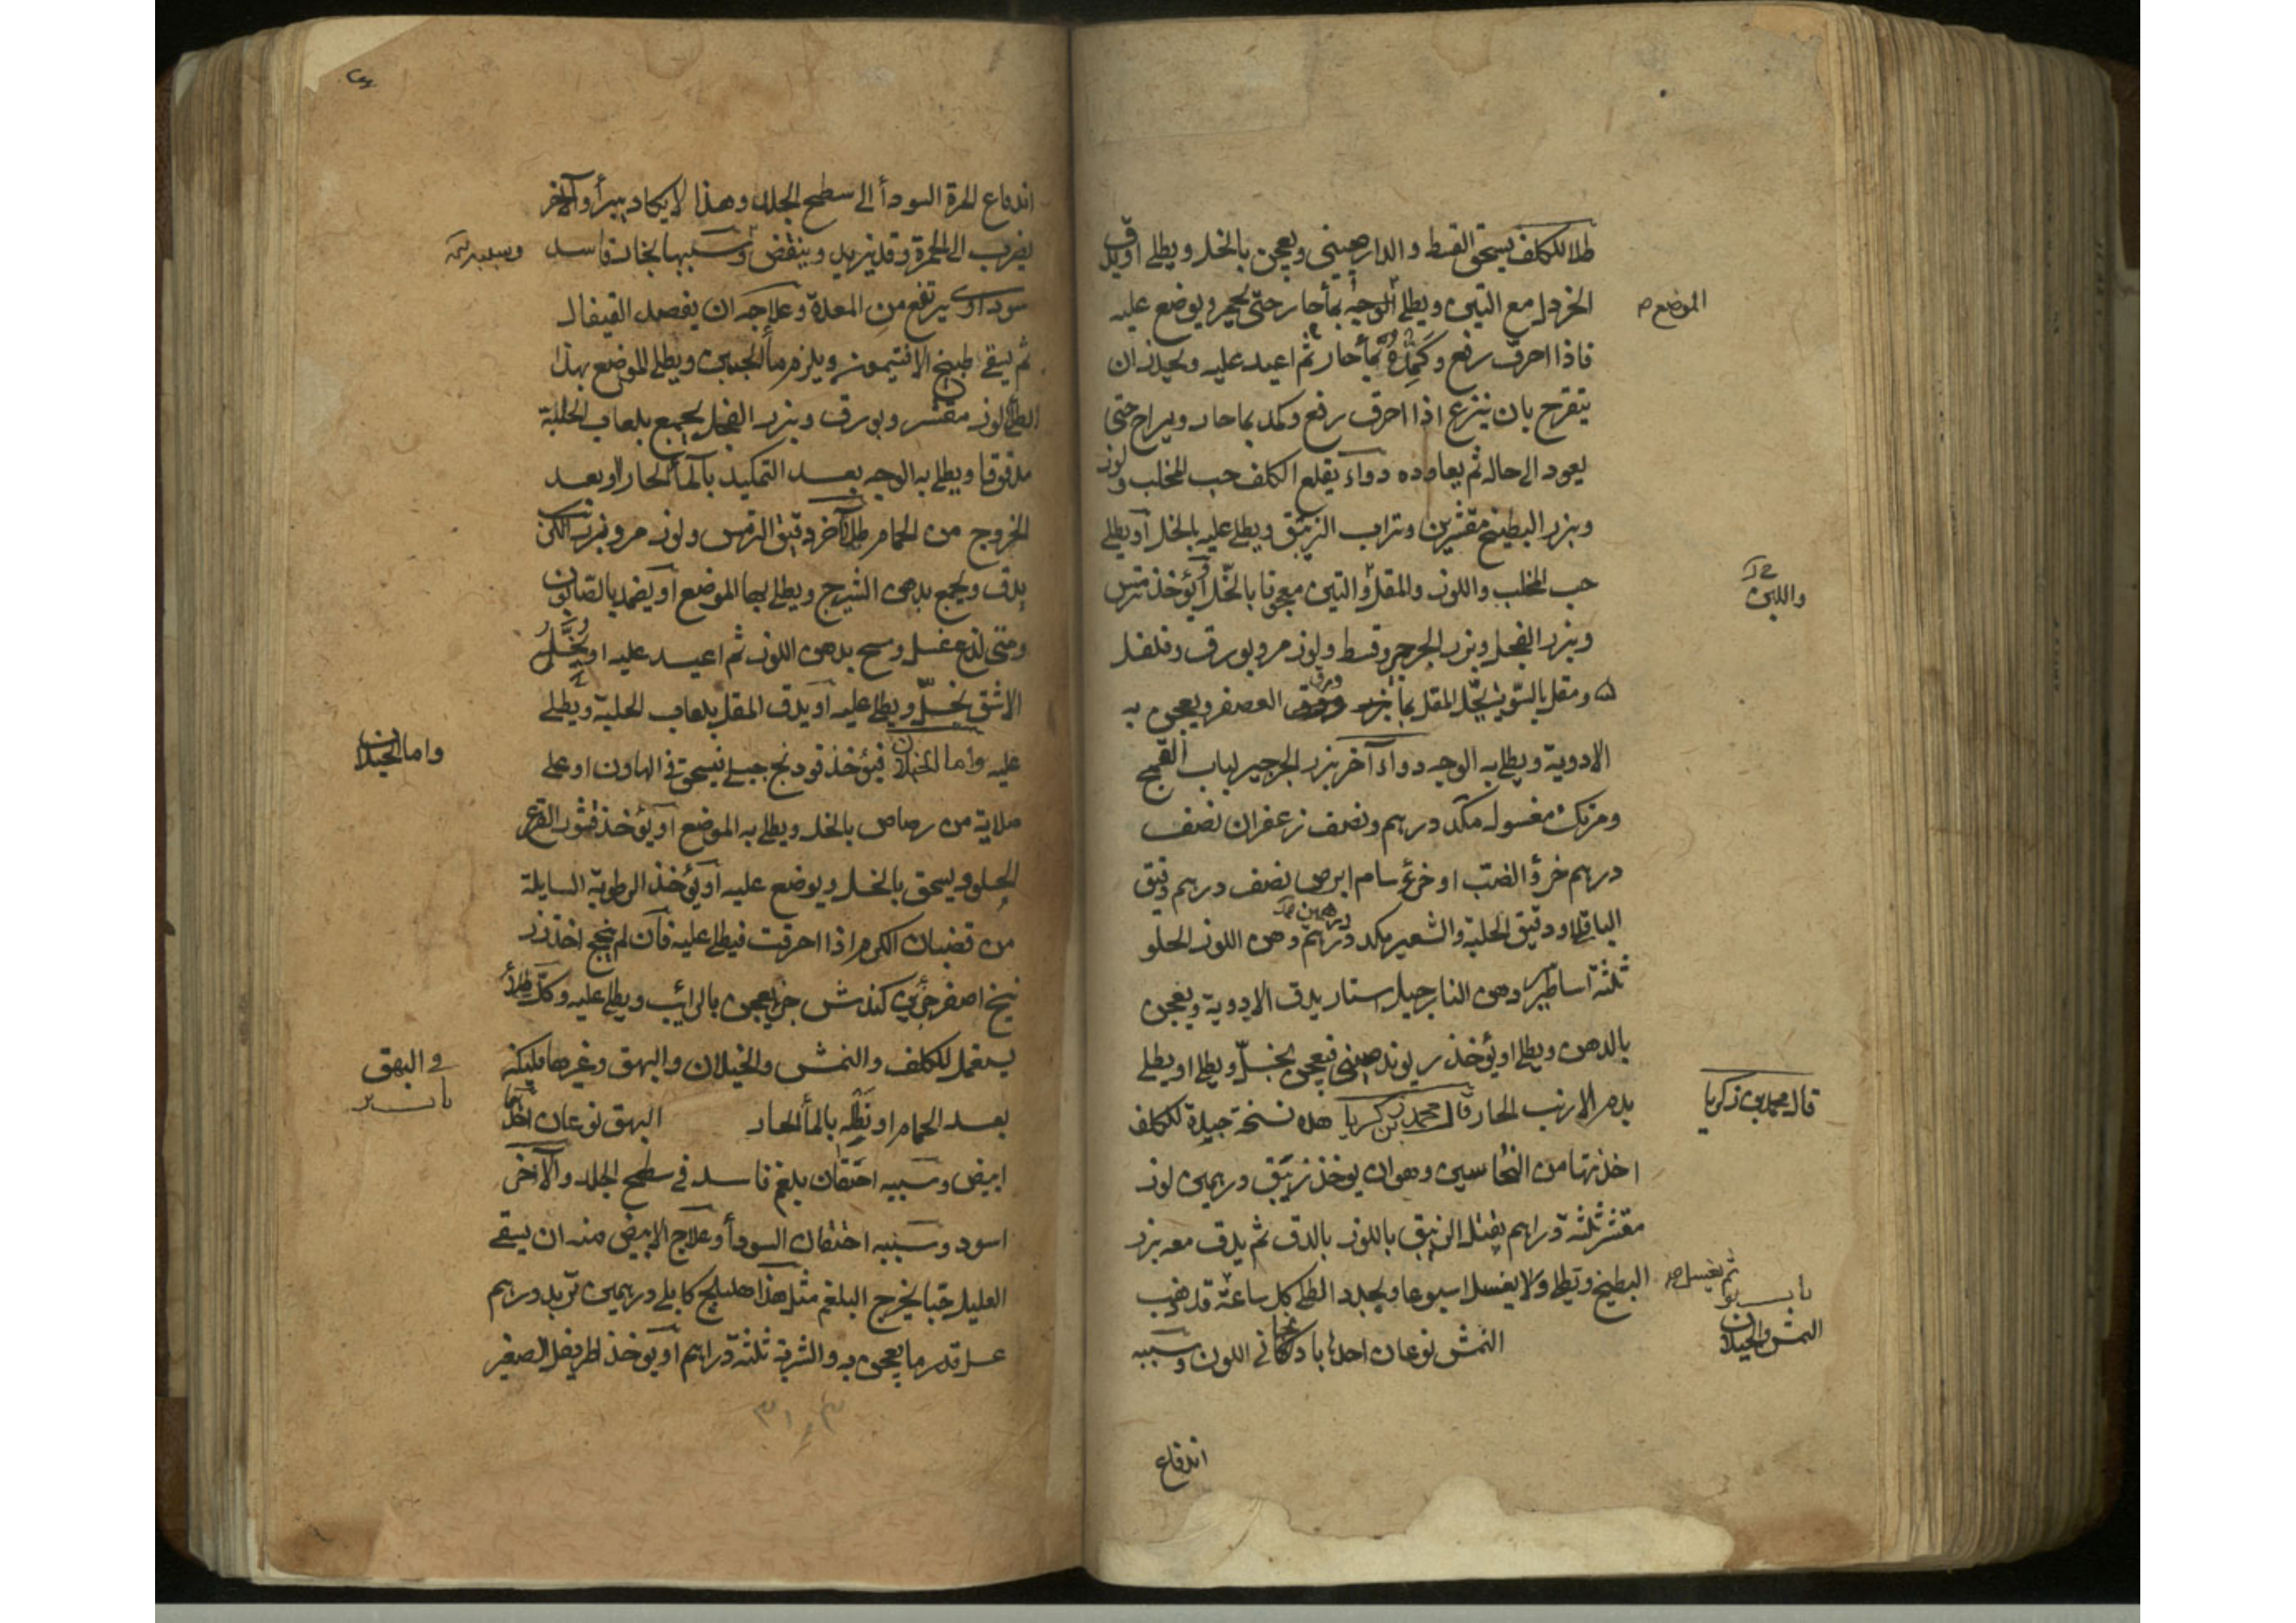 طلا للكلف يسحق القسط والدارصينى ويعجن بالخل ويطلى او يدق
الموضع
الخردل مع التين ويطلى الوجه بمأ حار حتى يحمر ويوضع عليه
فاذا احرق رفع وكمد بمأ حار ثم اعيد عليه ويحذر ان
يتقرح بان ينزع اذا احرق رفع وكمد بما حار ويراح حتى
يعود الى حاله ثم يعاوده دواء يقلع الكلف حب المحلب ولوز
وبزر البطيخ مقشرين وتراب الزيبق ويطلى عليه بالخل او يطلى
حب المحلب واللوز والمقل والتين معجونا بالخل او يؤخذ ترمس
واللبن
وبزر الفجل وبزر الجرجير وقسط ولوز مر وبورق وفلفل
ومقل بالسوية يحل المقل بمأ ورق العصفر ويعجن به
الادوية ويطلى به الوجه دواء آخر بزر الجرجير لباب القمح
ومرتك مغسول مكد درهم ونصف زعفران نصف
درهم خرؤ الضب او خرؤ سام ابرص نصف درهم دقيق
الباقلا ودقيق الحلبة والشعير مكد درهم دهن اللوز الحلو
درهمين
ثلثة اساتير دهن النارجيل استار يدق الادوية ويعجن
بالدهن ويطلى او يؤخذ ريوند صينى فيعجن بخل ويطلى او يطلى
بدم الارنب الحار قال محمد بن زكريا هذه نسخة جيدة للكلف
قال محمد بن زكريا
اخذتها من النخاسين وهو ان يوخذ زيبق درهمين لوز
مقشر ثلثة دراهم يقتل الزيبق باللوز بالدق ثم يدق معه بزر
البطيخ ويطلى ولا يغسل اسبوعا ويجدد الطلى كل ساعة
ثم يغسل
النمش والخيلان
النمش نوعان احدها باذنجانى اللون وسببه
اندفاع
اندفاع المرة السودأ الى سطح الجلد وهذا لا يكاد يبرأ والآخر
يضرب الى الحمرة وقد يزيد وينقص وسببها بخار فاسد
سوداوى يرتفع من المعدة وعلاجه ان يفصد القيفال
ثم يسقى طبيخ الافتيمون ويلزم مأ الجبن ويطلى الموضع بهذا
الطلى لوز مقشر وبورق وبزر الفجل يجمع بلعاب الحلبة
مدقوقا ويطلى به الوجه بعد التكميد بالمأ الحار او بعد
الخروج من الحمام طلا آخر دقيق الترمس ولوز مر وبزر الكرنب
يدق ويجمع بدهن الشيرج ويطلى بهما الموضع او يضمد بالصابون
ومتى لذع غسل ومسح بدهن اللوز ثم اعيد عليه او يحل
الاشق بخل ويطلى عليه او يدق المقل بلعاب الحلبة ويطلى
عليه واما الخيلان فيؤخذ فودنج جبلى فيسحق فى الهاون او على
واما الخيلان
صلاية من رصاص بالخل ويطلى به الموضع او يؤخذ قشور القرع
الحلو ويسحق بالخل ويوضع عليه او يؤخذ الرطوبة السايلة
من قضبان الكرم اذا احرقت فيطلى عليه فان لم ينجح اخذ زر
نيخ اصفر جزئين كندش جزء يعجن بالرائب ويطلى عليه وكل طلأ
يستعمل للكلف والنمش والخيلان والبهق وغيرها فليكن
بعد الحمام او نطله بالمأ الحار البهق نوعان احدهما
فى البهق
ابيض وسببه احتقان بلغم فاسد فى سطح الجلد والآخر
اسود وسببه احتقان السودأ وعلاج الابيض منه ان يسقى
العليل حبا يخرج البلغم مثل هذا اهليلج كابلى درهمين تربد درهم
عسل قدر ما يعجن به والشربة ثلثة دراهم او يوخذ اطريفل الصغير